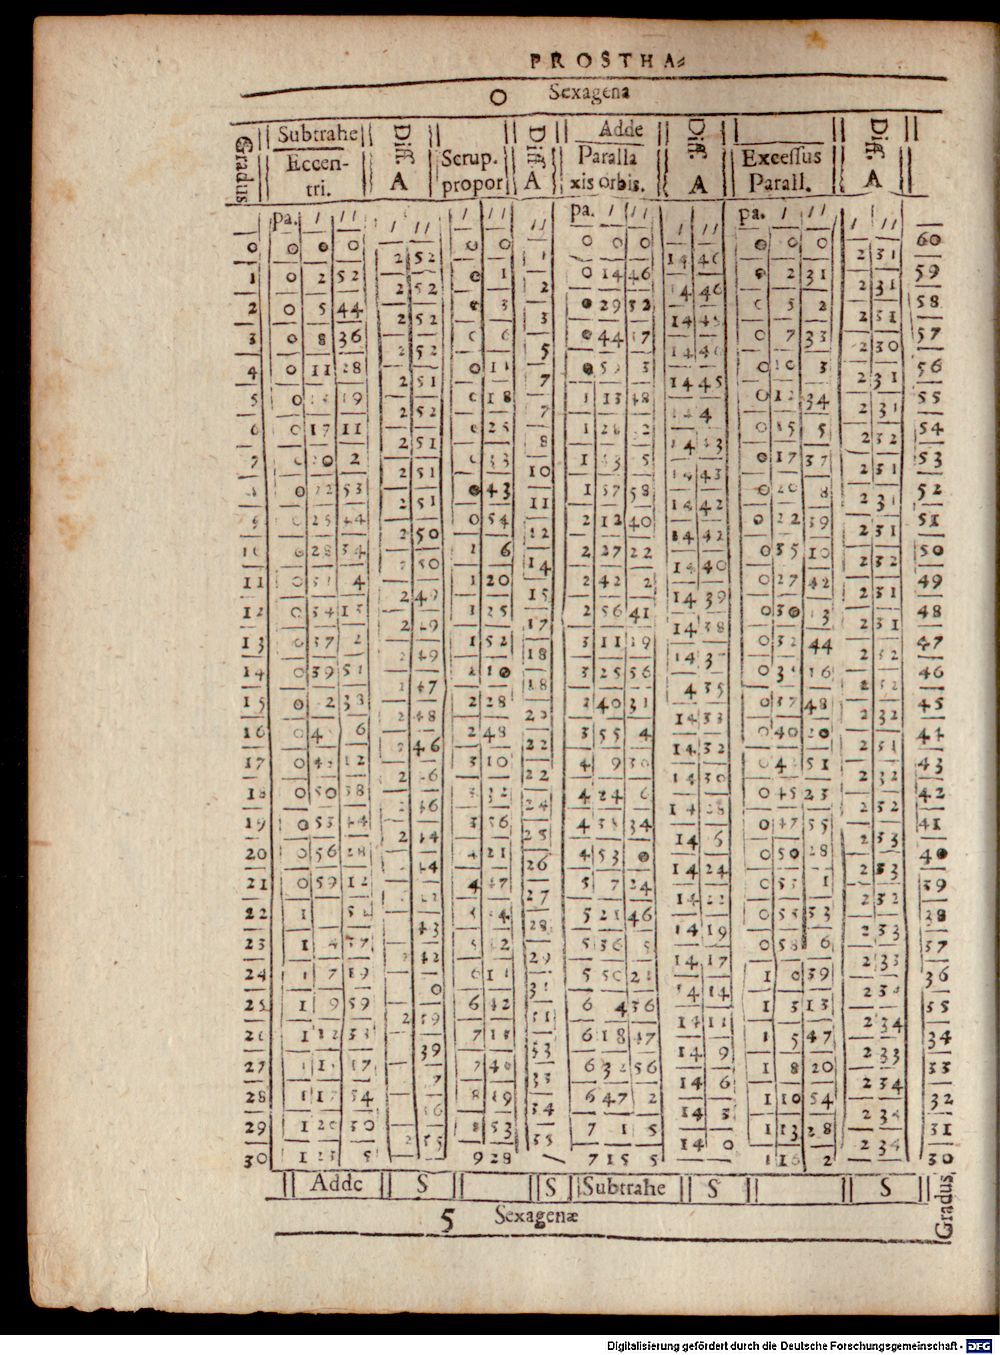 PROSTHA=
0 Sexagena
Gradus | Subtrahe Eccen- tri. | Diff. A | Scrup. propor | Diff. A | Adde Paralla xis orbis. | Diff. A | Excessus Parall. | Diff. A
pa. / // | / // | / // | // | pa. / // | / // | pa. / // | / //
0 | 0 0 0 | 2 52 | 0 0 | 1 | 0 0 0 | 14 46 | 0 0 0 | 2 31 | 60
1 | 0 2 52 | 2 52 | 0 1 | 2 | 0 14 46 | 14 46 | 0 2 31 | 2 31 | 59
2 | 0 5 44 | 2 52 | 0 3 | 3 | 0 29 32 | 14 45 | 0 5 2 | 2 31 | 58
3 | 0 8 36 | 2 52 | 0 6 | 5 | 0 44 17 | 14 46 | 0 7 33 | 2 30 | 57
4 | 0 11 28 | 2 51 | 0 11 | 7 | 0 59 3 | 14 45 | 0 10 3 | 2 31 | 56
5 | 0 14 19 | 2 52 | 0 18 | 7 | 1 13 48 | 14 4 | 0 12 34 | 2 31 | 55
6 | 0 17 11 | 2 51 | 0 25 | 8 | 1 28 2 | 14 43 | 0 15 5 | 2 32 | 54
7 | 0 20 2 | 2 51 | 0 33 | 10 | 1 43 5 | 14 43 | 0 17 37 | 2 31 | 53
8 | 0 22 53 | 2 51 | 0 43 | 11 | 1 57 58 | 14 42 | 0 20 8 | 2 31 | 52
9 | 0 25 44 | 2 50 | 0 54 | 12 | 2 12 40 | 14 42 | 0 22 39 | 2 31 | 51
10 | 0 28 34 | 2 50 | 1 6 | 14 | 2 27 22 | 14 40 | 0 35 10 | 2 32 | 50
11 | 0 31 4 | 2 49 | 1 20 | 15 | 2 42 2 | 14 39 | 0 27 42 | 2 31 | 49
12 | 0 34 13 | 2 49 | 1 25 | 17 | 2 56 41 | 14 38 | 0 30 13 | 2 31 | 48
13 | 0 37 2 | 2 49 | 1 52 | 18 | 3 11 19 | 14 37 | 0 32 44 | 2 32 | 47
14 | 0 39 51 | 2 47 | 2 10 | 18 | 3 25 56 | 4 35 | 0 3 16 | 2 32 | 46
15 | 0 2 38 | 2 48 | 2 28 | 20 | 3 40 31 | 14 33 | 0 37 48 | 2 32 | 45
16 | 0 4 6 | 2 46 | 2 48 | 22 | 3 55 4 | 14 32 | 0 40 20 | 2 31 | 44
17 | 0 4 12 | 2 6 | 3 10 | 22 | 4 9 36 | 14 30 | 0 4 51 | 2 32 | 43
18 | 0 50 58 | 46 | 3 32 | 24 | 4 24 6 | 14 28 | 0 45 23 | 2 32 | 42
19 | 0 53 44 | 2 44 | 3 56 | 25 | 4 38 34 | 14 6 | 0 47 55 | 2 33 | 41
20 | 0 56 28 | 44 | 4 21 | 26 | 4 53 0 | 14 24 | 0 50 28 | 2 33 | 40
21 | 0 59 12 | 4 47 | 27 | 5 7 24 | 14 22 | 0 53 1 | 2 32 | 39
22 | 1 54 | 43 | 4 | 28 | 5 21 46 | 14 19 | 0 55 33 | 2 33 | 38
23 | 1 4 37 | 42 | 5 42 | 29 | 5 36 5 | 14 17 | 0 58 6 | 2 33 | 37
24 | 1 7 19 | 0 | 6 11 | 31 | 5 50 21 | 14 14 | 1 0 39 | 2 34 | 36
25 | 1 9 59 | 2 39 | 6 42 | 31 | 6 4 36 | 14 11 | 1 3 13 | 2 34 | 55
26 | 1 12 33 | 39 | 7 18 | 33 | 6 18 47 | 14 9 | 1 5 47 | 2 33 | 34
27 | 1 1 17 | 7 | 7 46 | 33 | 6 32 56 | 14 6 | 1 8 20 | 2 34 | 33
28 | 1 17 54 | 6 | 8 19 | 34 | 6 47 2 | 14 3 | 1 10 54 | 2 34 | 32
29 | 1 20 30 | 2 35 | 8 53 | 35 | 7 1 5 | 14 0 | 1 13 28 | 2 34 | 31
30 | 1 23 5 | 9 28 | / | 7 15 5 | 1 16 2 | 30
Adde | S | S | Subtrahe | S | S | Gradus
5 Sexagenæ
Digitalisierung gefördert durch die Deutsche Forschungsgemeinschaft - DFG